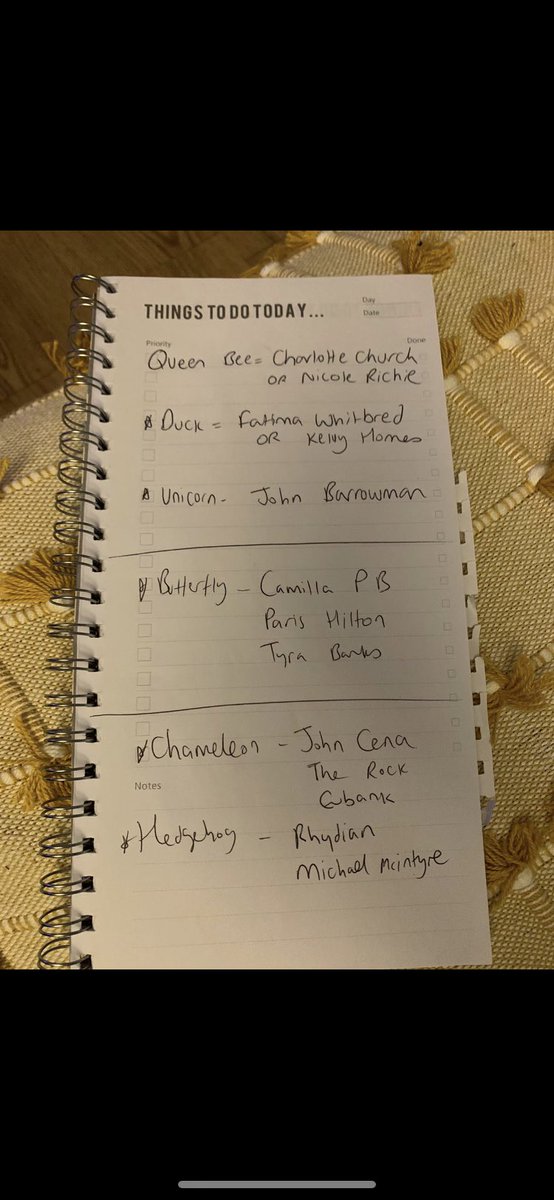 THINGS TO DO TODAY...
Day
Date
Priority
Done
Queen Bee = Charlotte Church
OR Nicole Richie
Duck = Fatima Whitbred
OR Kelly Homes
Unicorn - John Barrowman
Butterfly - Camilla P B
Paris Hilton
Tyra Banks
Chameleon - John Cena
The Rock
Notes
Eubank
* Hedgehog - Rhydian
Michael Mcintyre